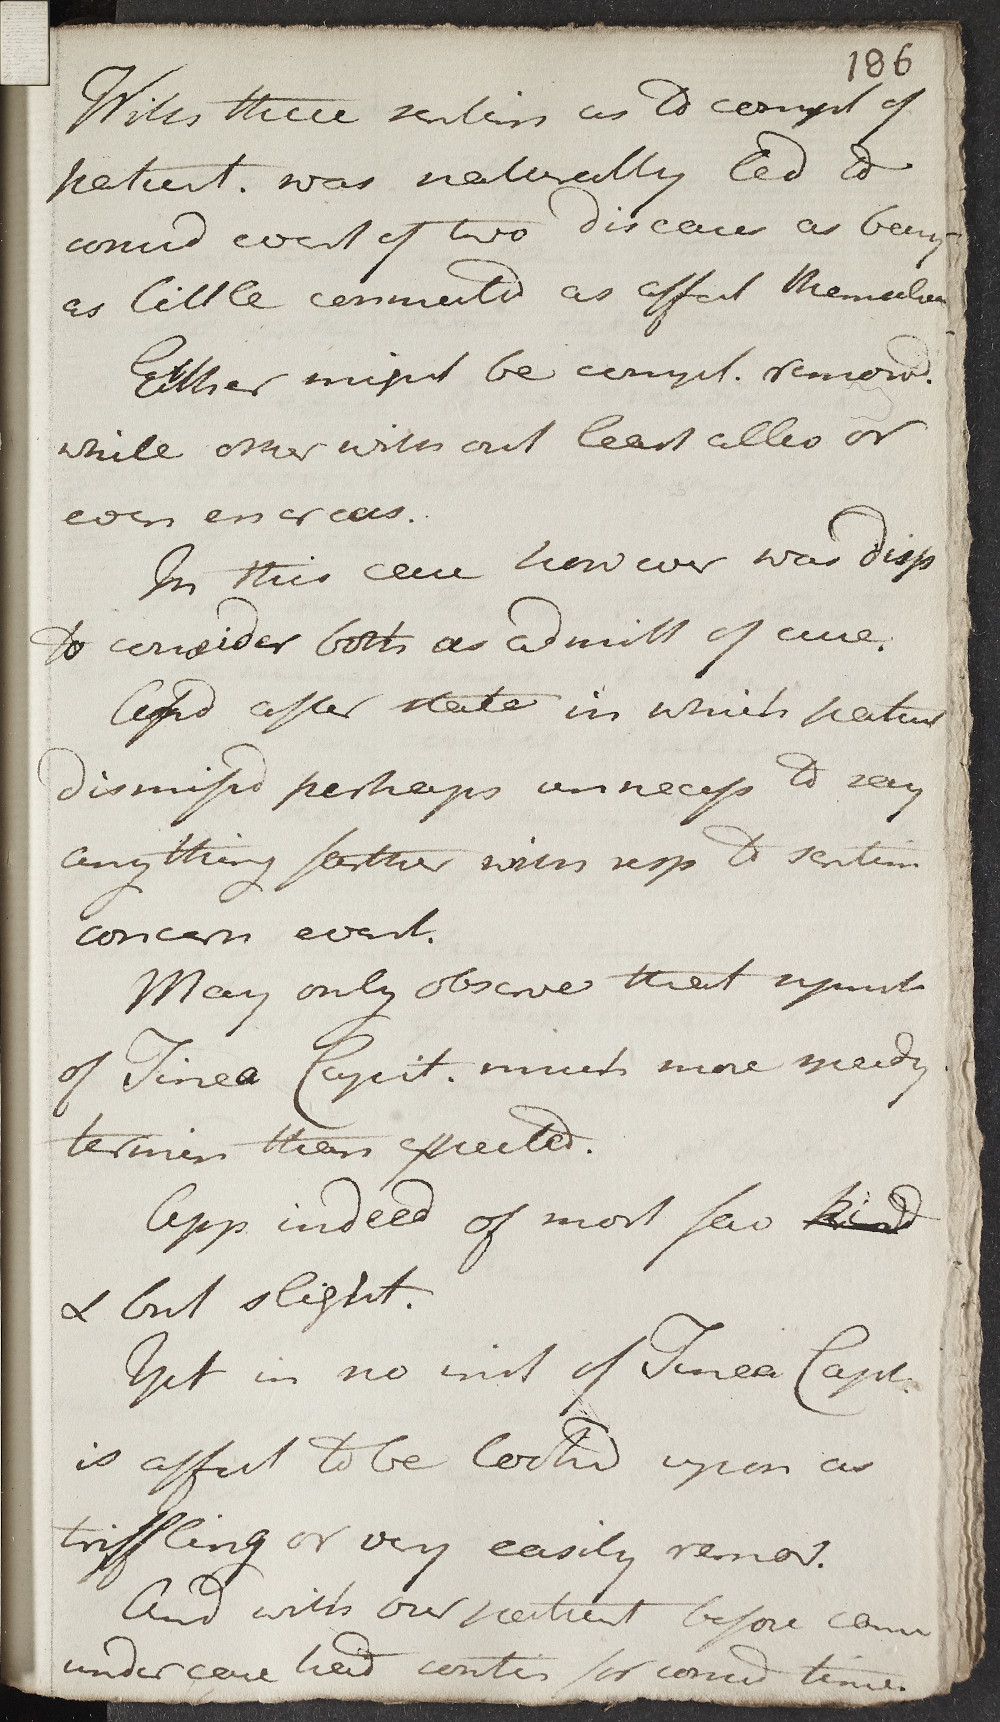 186
With these sentim as to compl of
patient. was naturally led to
consid event of two diseases as being
as little connected as affect themselves
Either might be compl. remov'd.
while other without least allev or
even encreas.
In this case however was disp
to consider both as admitt of cure.
And after state in which patient
dismiss'd perhaps unnecess to say
any thing farther with resp to sentim
concern event.
May only observe that
of Tinea Capit. much more speedy
termin than expected.
App indeed of most fav kind
& but slight.
Yet in no inst of Tinea Capit.
is affect to be look'd upon as
triffling or very easily remov.
And with our patient before came
under care had contin for consid time.